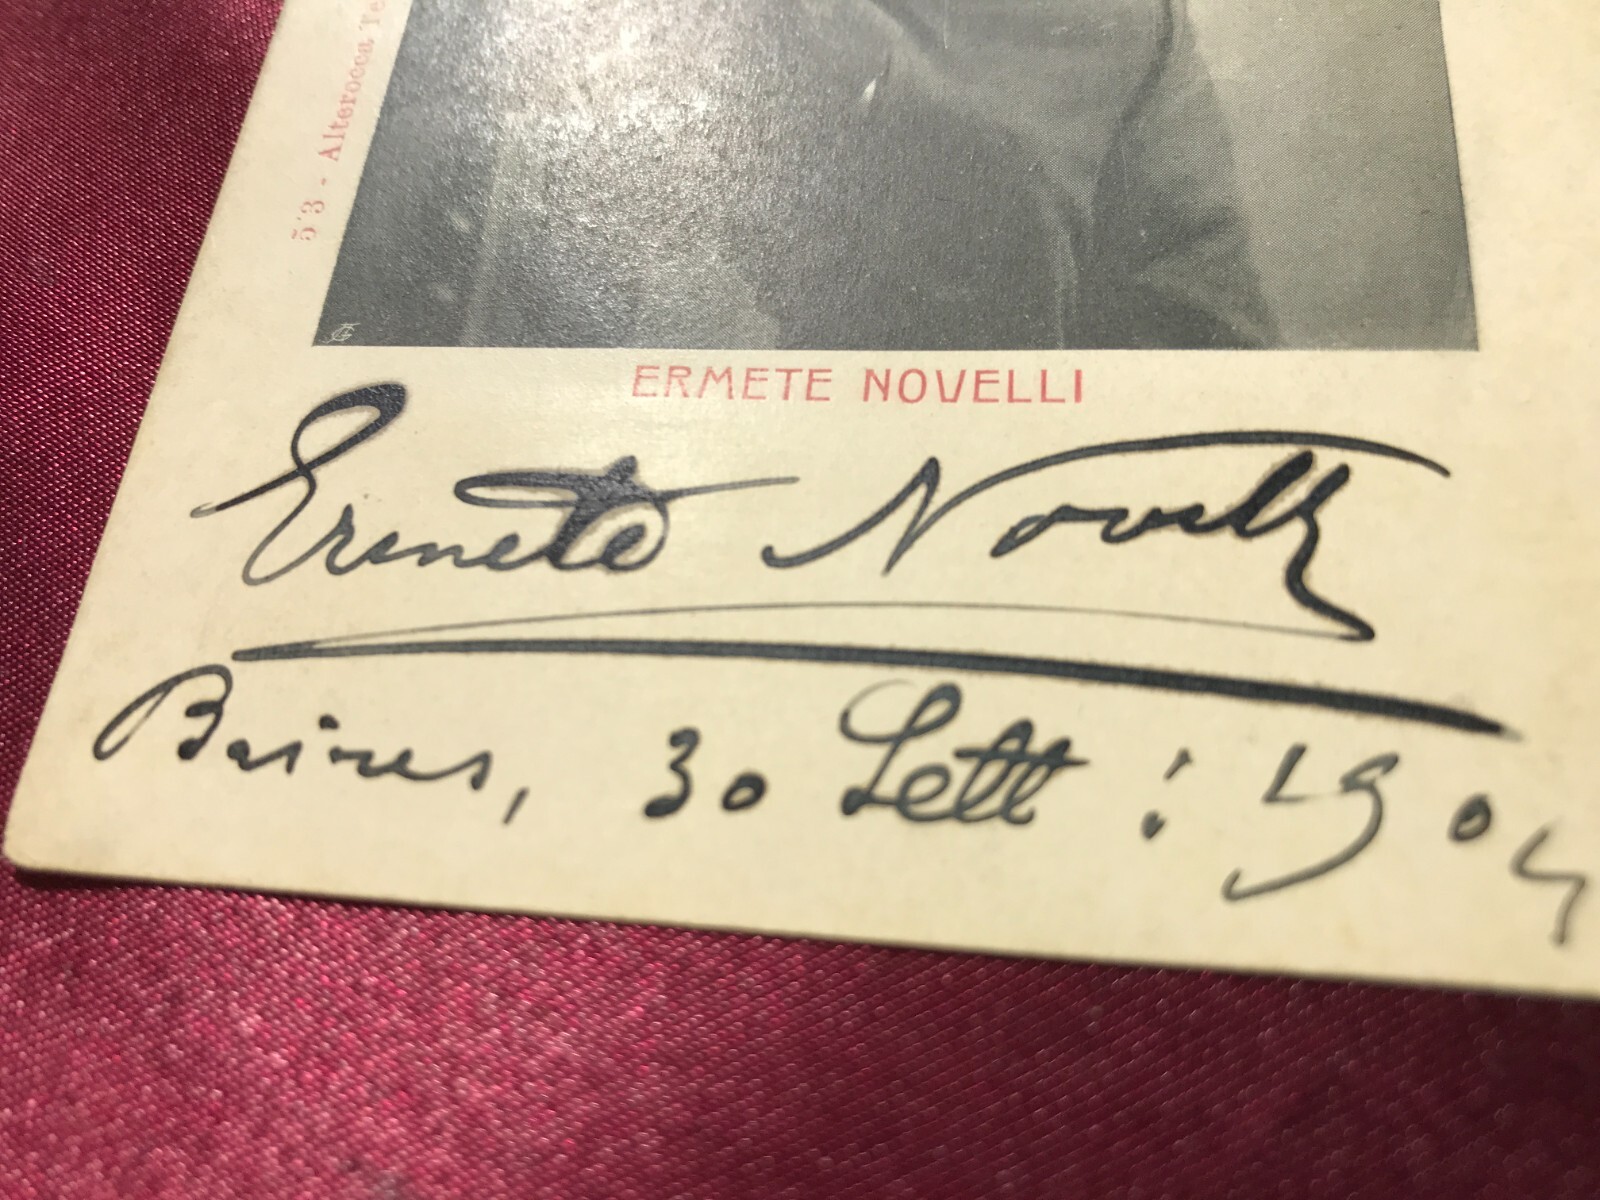 5'3 - Alterocca, Te
ERMETE NOVELLI
Ermete Novelli
Baires, 30 Sett: 1904